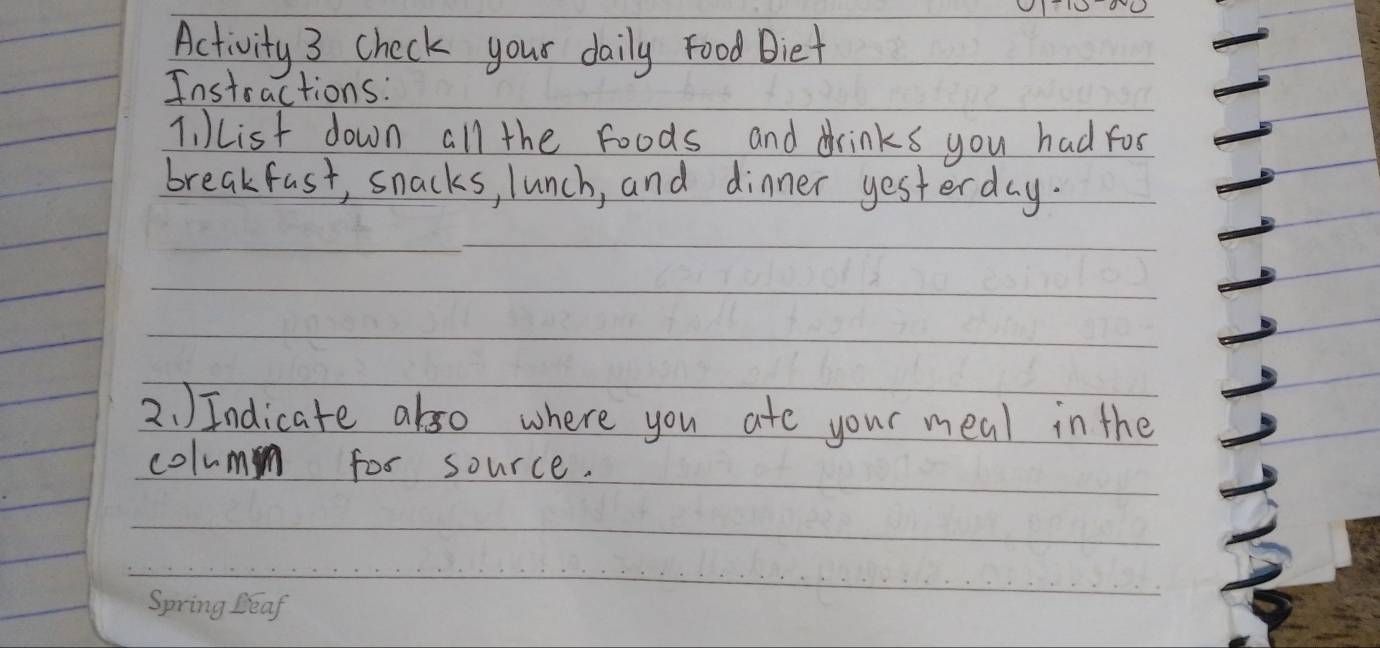 Activity 3 Check your daily Food Diet
Instractions:
1.) List down all the foods and drinks you had for
breakfast, snacks, lunch, and dinner yesterday.
2.) Indicate also where you ate your meal in the
column for source.
Spring Leaf